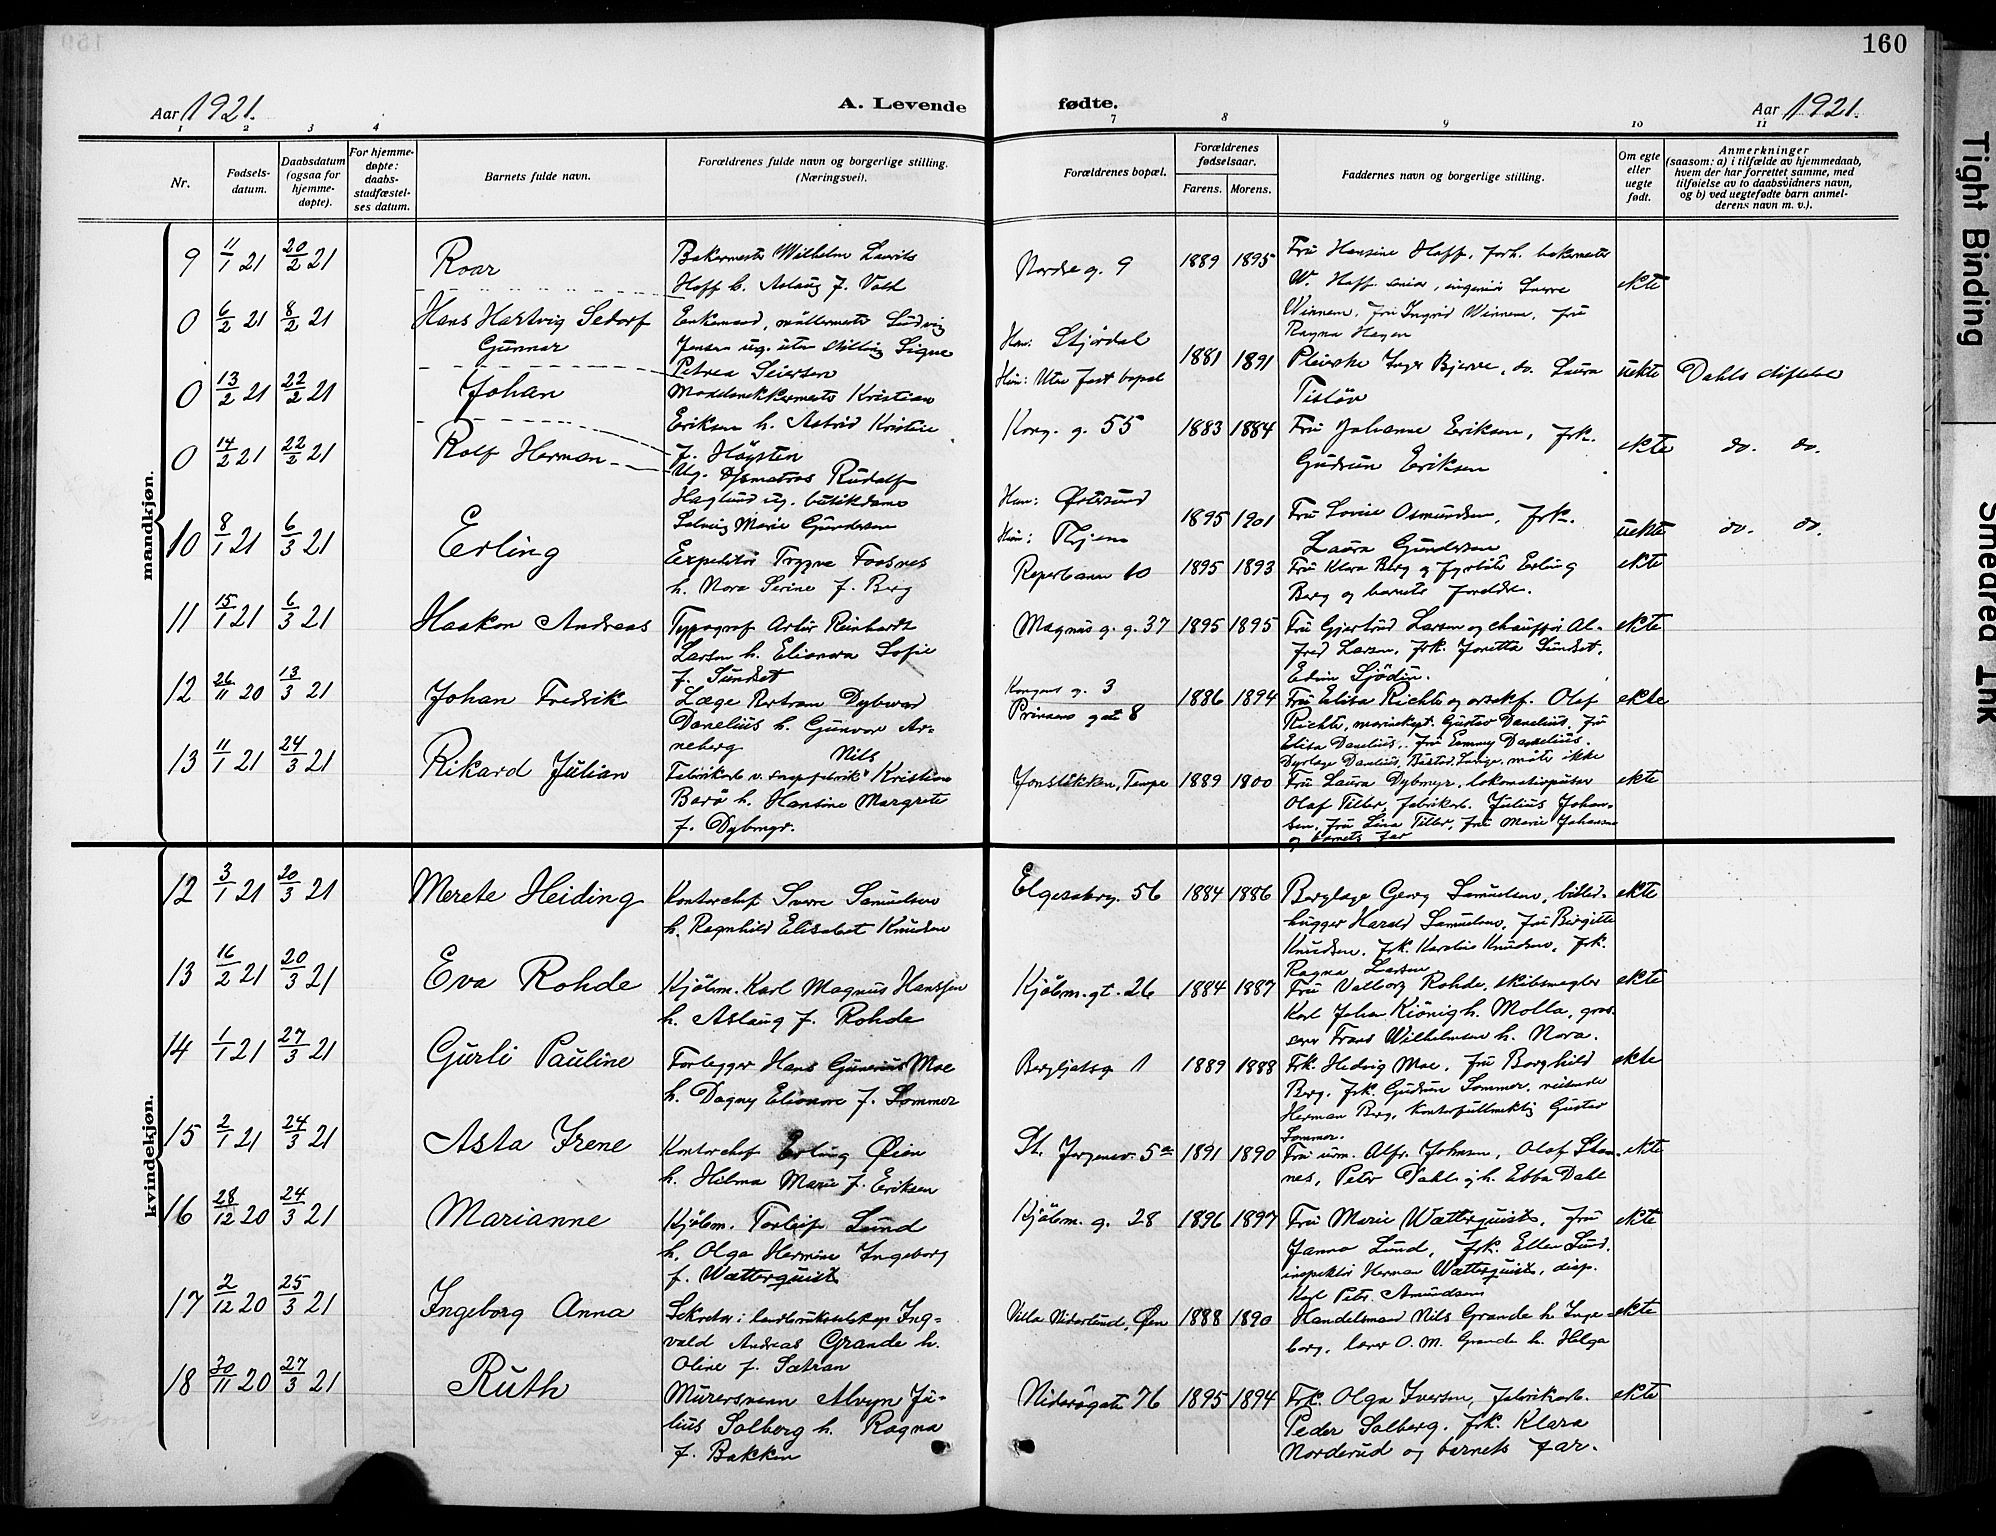 160
Aar 1921. A. Levende fødte. Aar 1921.
1 2 3 4 7 8 9 10 11
Nr. Fødsels-datum. Daabsdatum (ogsaa for hjemme-døpte). For hjemme-døpte: daabs-stadfæstel-ses datum. Barnets fulde navn. Forældrenes fulde navn og borgerlige stilling. (Næringsvei). Forældrenes bopæl. Forældrenes fødselsaar. Farens. Morens. Faddernes navn og borgerlige stilling. Om egte eller uegte født. Anmerkninger (saasom: a) i tilfælde av hjemmedaab, hvem der har forrettet samme, med tilføielse av to daabsvidners navn, og b) ved uegtefødte barn anmel-derens navn m. v.).
mandkjøn.
9 11/1 21 20/2 21 Roar
Bakermester Wilhelm Laurits
Hoff h. Aslaug f.
Nordre g. 9 1889 1895
Fru Hansine Hoff, forh. bakermester
W. Hoff senior, ingeniør Sverre
Winnem, fru Ingrid Winnem, fru
Ragna Hagen
ekte
0 6/2 21 8/2 21 Hans Hartvig Sedorf
Gunnar
Enkemand, møllermester Ludvig
Jensen ug. uten stilling Signe
Petrea Seiersen
Han: Stjørdal
Hun: Uten fast bopæl
1881 1891
Pleierske Inger Bjerve, do. Laura
Tisløv
uekte Dahls stiftelse
0 13/2 21 22/2 21 Johan
Møbelsnekkermester Kristian
Eriksen h. Astrid Kristine
f. Høysten
Kong. g. 55 1883 1884
Fru Johanne Eriksen, frk.
Gudrun Eriksen
ekte do. do.
0 14/2 21 22/2 21 Rolf Herman
Ug. Rudolf
Haglund ug. butikdame
Solveig Marie Gundersen
Han: Østersund
Hun:
1895 1901
Fru Lovise Osmundsen, frk.
Laura Gundersen
uekte do. do.
10 8/1 21 6/3 21 Erling
Expeditør Trygve Foosnes
h. Nora Serine f. Berg
Reperbanen 10 1895 1893
Fru Klara Berg og fyrbøter Erling
Berg og barnets foreldre.
ekte
11 15/1 21 6/3 21 Haakon Andreas
Typograf Artur Reinhardt
Larsen h. Elionora Sofie
f. Sundset
Magnus g. g. 37 1895 1895
Fru Gjertrud Larsen og chauffør Al-
fred Larsen, frk. Jonetta Sundset,
Edvin Sjödin.
ekte
12 26/11 20 13/3 21 Johan Fredrik
Læge Bertram Dybwad
Danelius h. Gunvor Ar-
neberg
Kongens g. 3
Prinsens gate 8
1886 1894
Fru Elisa Richter og Olaf
Richter, marinekapt. Gustav Danelius, fru
Elisa Danelius, fru Emmy Danelius.
Dyrlæge Danelius, møtte ikke
ekte
13 11/1 21 24/3 21 Rikard Julian
Nils
Fabrikarb. v. Kristian
Berø h. Hansine Margrete
f. Dybmyr.
Jonsløkken, Tempe 1889 1800
Fru Laura Dybmyr, lokomotivpusser
Olaf Tiller, fabrikarb. Julius Johan-
sen, fru Lina Tiller, fru Marie Johansen
og barnets far
ekte
kvindekjøn.
12 3/1 21 20/3 21 Merete Heiding
Kontorchef Sverre Samuelsen
h. Ragnhild Elisabet Knudsen
Elgesæterg. 56 1884 1886
Berglæge Georg Samuelsen, billed-
hugger Harald Samuelsen, fru Birgitte
Knudsen, frk. Karoline Knudsen, frk.
Ragna Larsen
ekte
13 16/2 21 20/3 21 Eva Rohde
Kjøbm. Karl Magnus Hanssen
h. Aslaug f. Rohde
Kjøbm. gt. 26 1884 1887
Fru Valborg Rohde, skibsmegler
Karl Johan Kiönig h. Molla, gros-
serer Frans Wilhelmsen h. Nora.
ekte
14 1/1 21 27/3 21 Gurli Pauline
Forlegger Hans Gunerius Moe
h. Dagny Elionore f. Sommer
Bergljotsg 1 1889 1888
Frk. Hedvig Moe, fru Borghild
Berg, frk. Gudrun Sommer, reisende
Herman Berg, kontorfullmektig Gustav
Sommer.
ekte
15 2/1 21 24/3 21 Asta Irene
Kontorchef Erling Øien
h. Hilma Marie f. Eriksen
St. Jørgensv. 5a 1891 1890
Fru Alfr. Johnsen, Olaf Stam-
nes, Peter Dahl og h. Ebba Dahl
ekte
16 28/12 20 24/3 21 Marianne
Kjøbm. Torleif Lund
h. Olga Hermine Ingeborg
f. Wætterquist
Kjøbm. g. 28 1896 1897
Fru Marie Wætterquist, fru
Janna Lund, frk. Ellen Lund,
inspektør Herman Wætterquist, disp.
Karl Petr. Amundsen
ekte
17 2/12 20 25/3 21 Ingeborg Anna
Sekretær i landbruksselskap Ing-
vald Andreas Grande h.
Oline f. Sætran
Villa Niderlund, Øen 1888 1890
Handelsmand Nils Grande h. Inge-
borg, lærer O. M. Grande h. Helga
ekte
18 30/11 20 27/3 21 Ruth
Murersvenn Alvyn Ju-
lius Solberg h. Ragna
f. Bakken
Niderøgate 76 1895 1894
Frk. Olga Iversen, fabrikarb.
Peder Solberg, frk. Klara
Norderud og barnets far.
ekte
Tight Binding
Smeared Ink